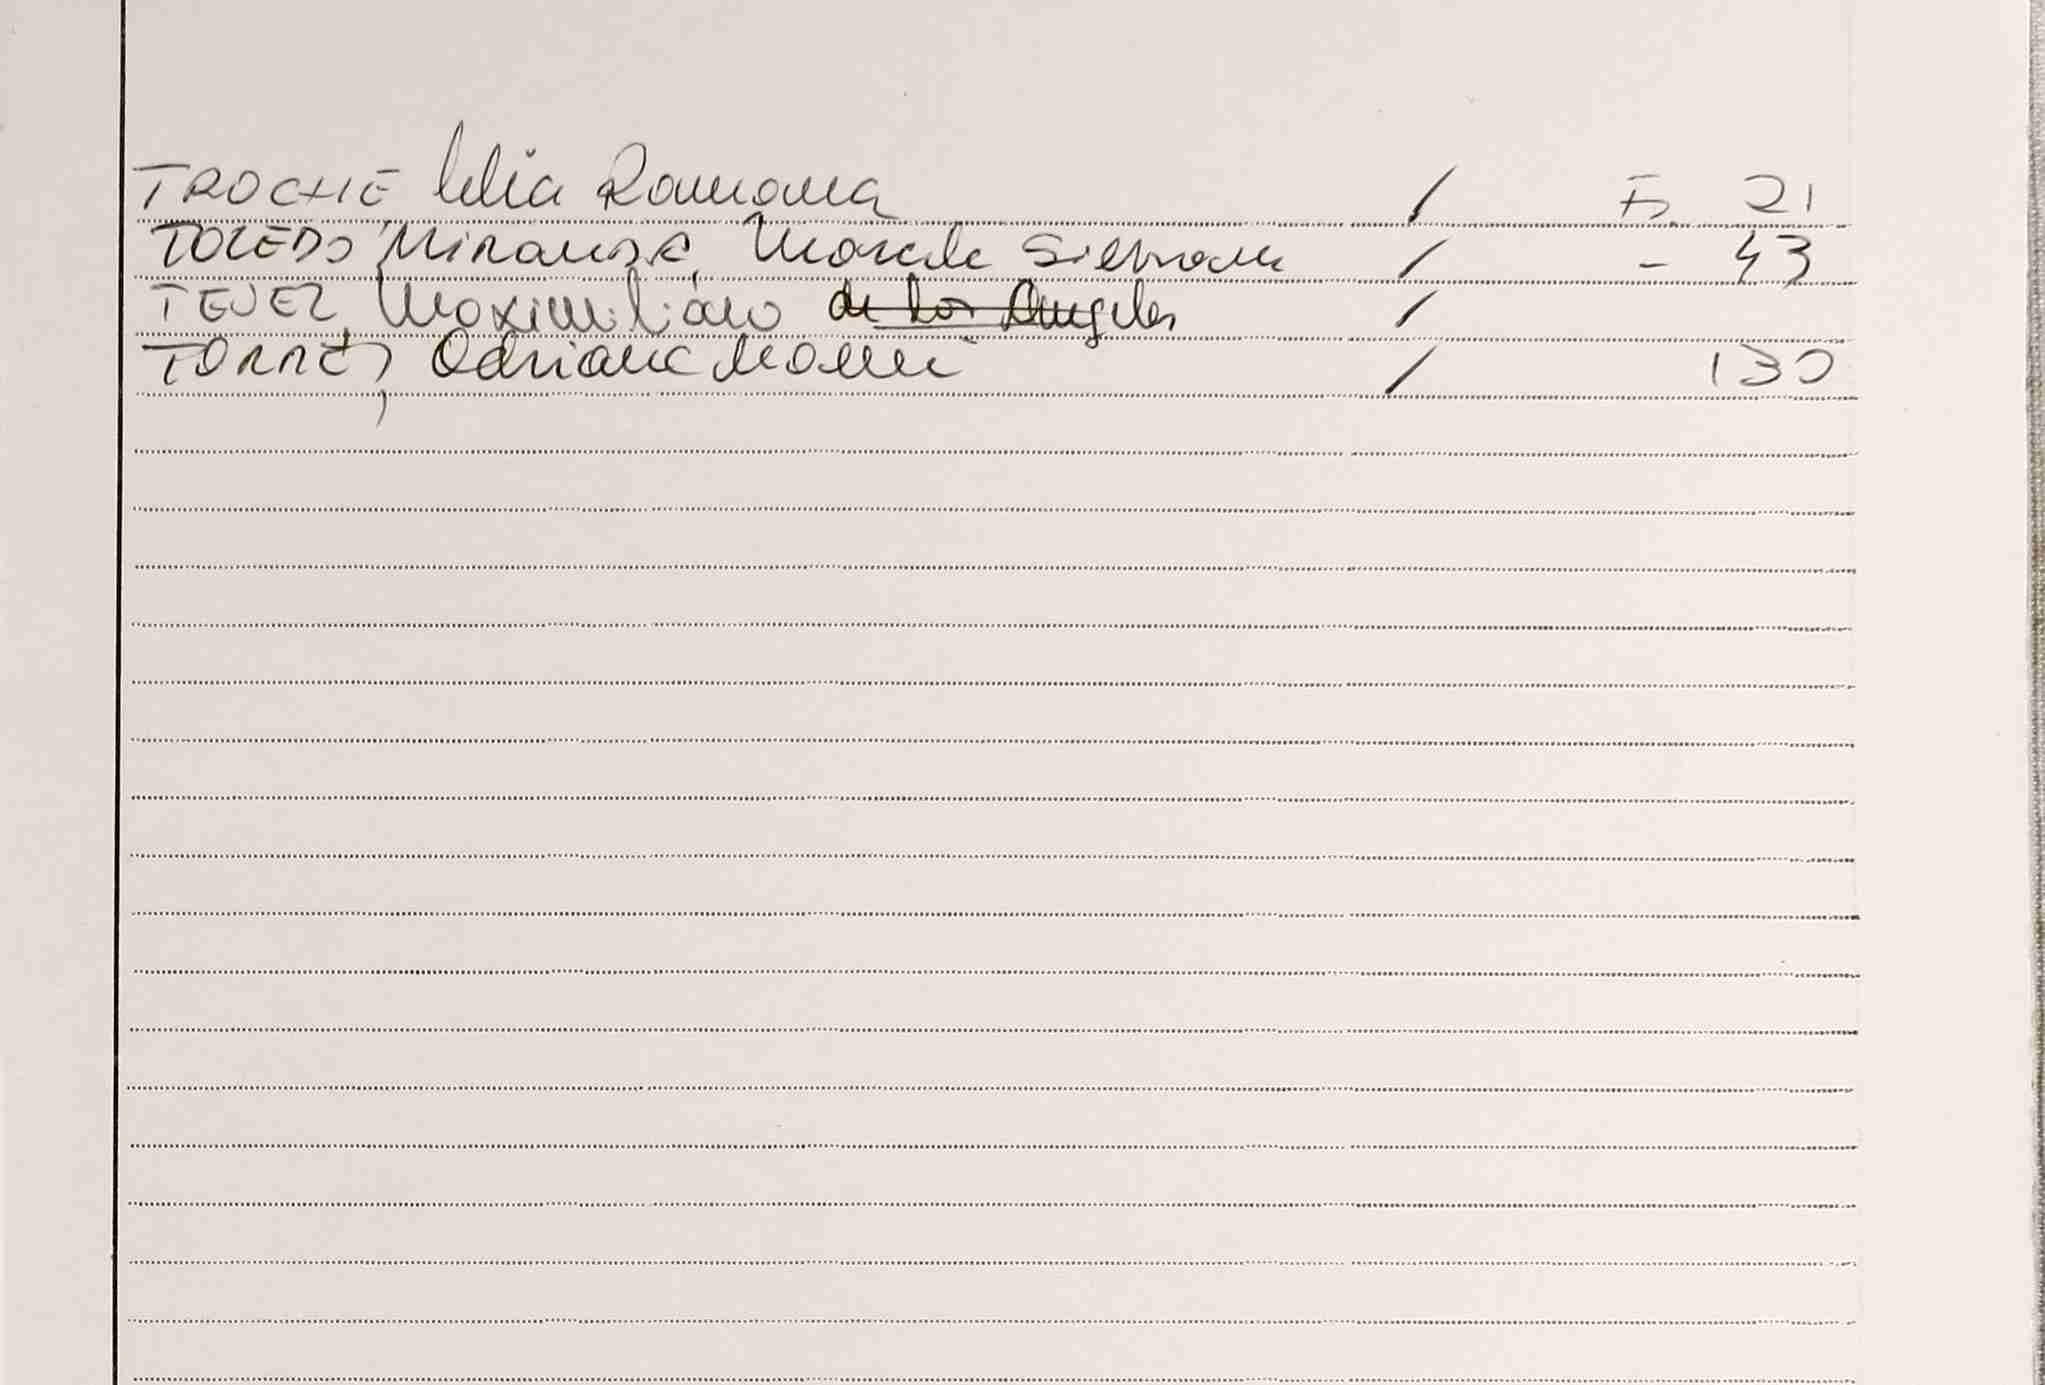 TROCHE lelia Ramona / Fs. 21
TOLEDO Miranda, Marcela Silvana / - 43
TEJEZ, Maximiliano de los Angeles /
TORRES, Adriana Noemi / 130